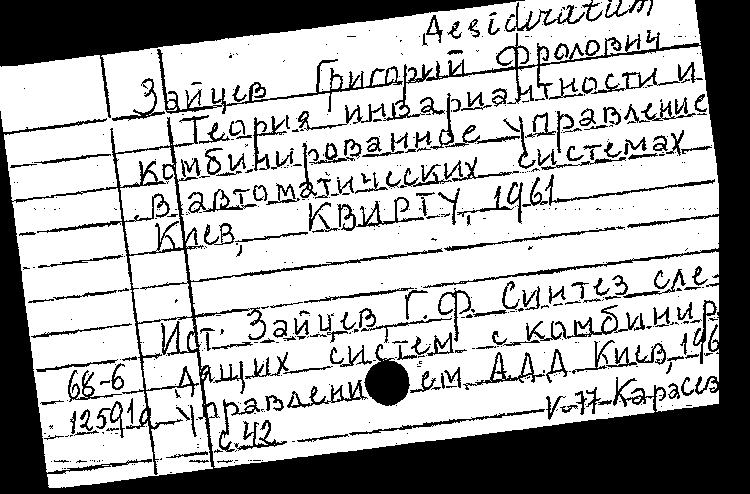 Desideratum
Зайцев Григорий Фролович
Теория инвариантности и
комбинированное управление
в автоматических системах
Киев, КВИРТУ, 1961
Ист. Зайцев, Г.Ф. Синтез сле-
68-6 дящих систем с комбинир
12591а управлени ем. АДД. Киев, 196
с.42 V-77 Карасев